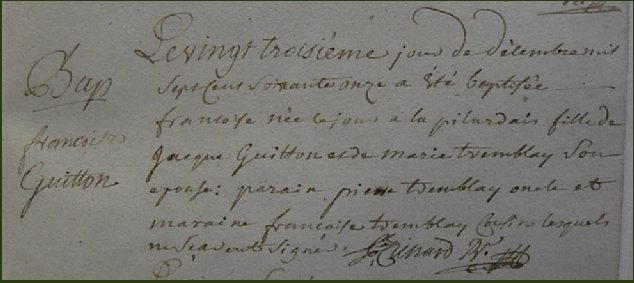 Bap
francoise
Guitton
Le vingt troisiéme jour de décembre mil
sept cens soixante onze a été baptisée
francoise née le jour a la pilardais fille de
Jacque Guitton et de marie tremblay son
epouse: parain pierre tremblay oncle et
maraine francoise tremblay cousine lesquels
ne scavent signé.